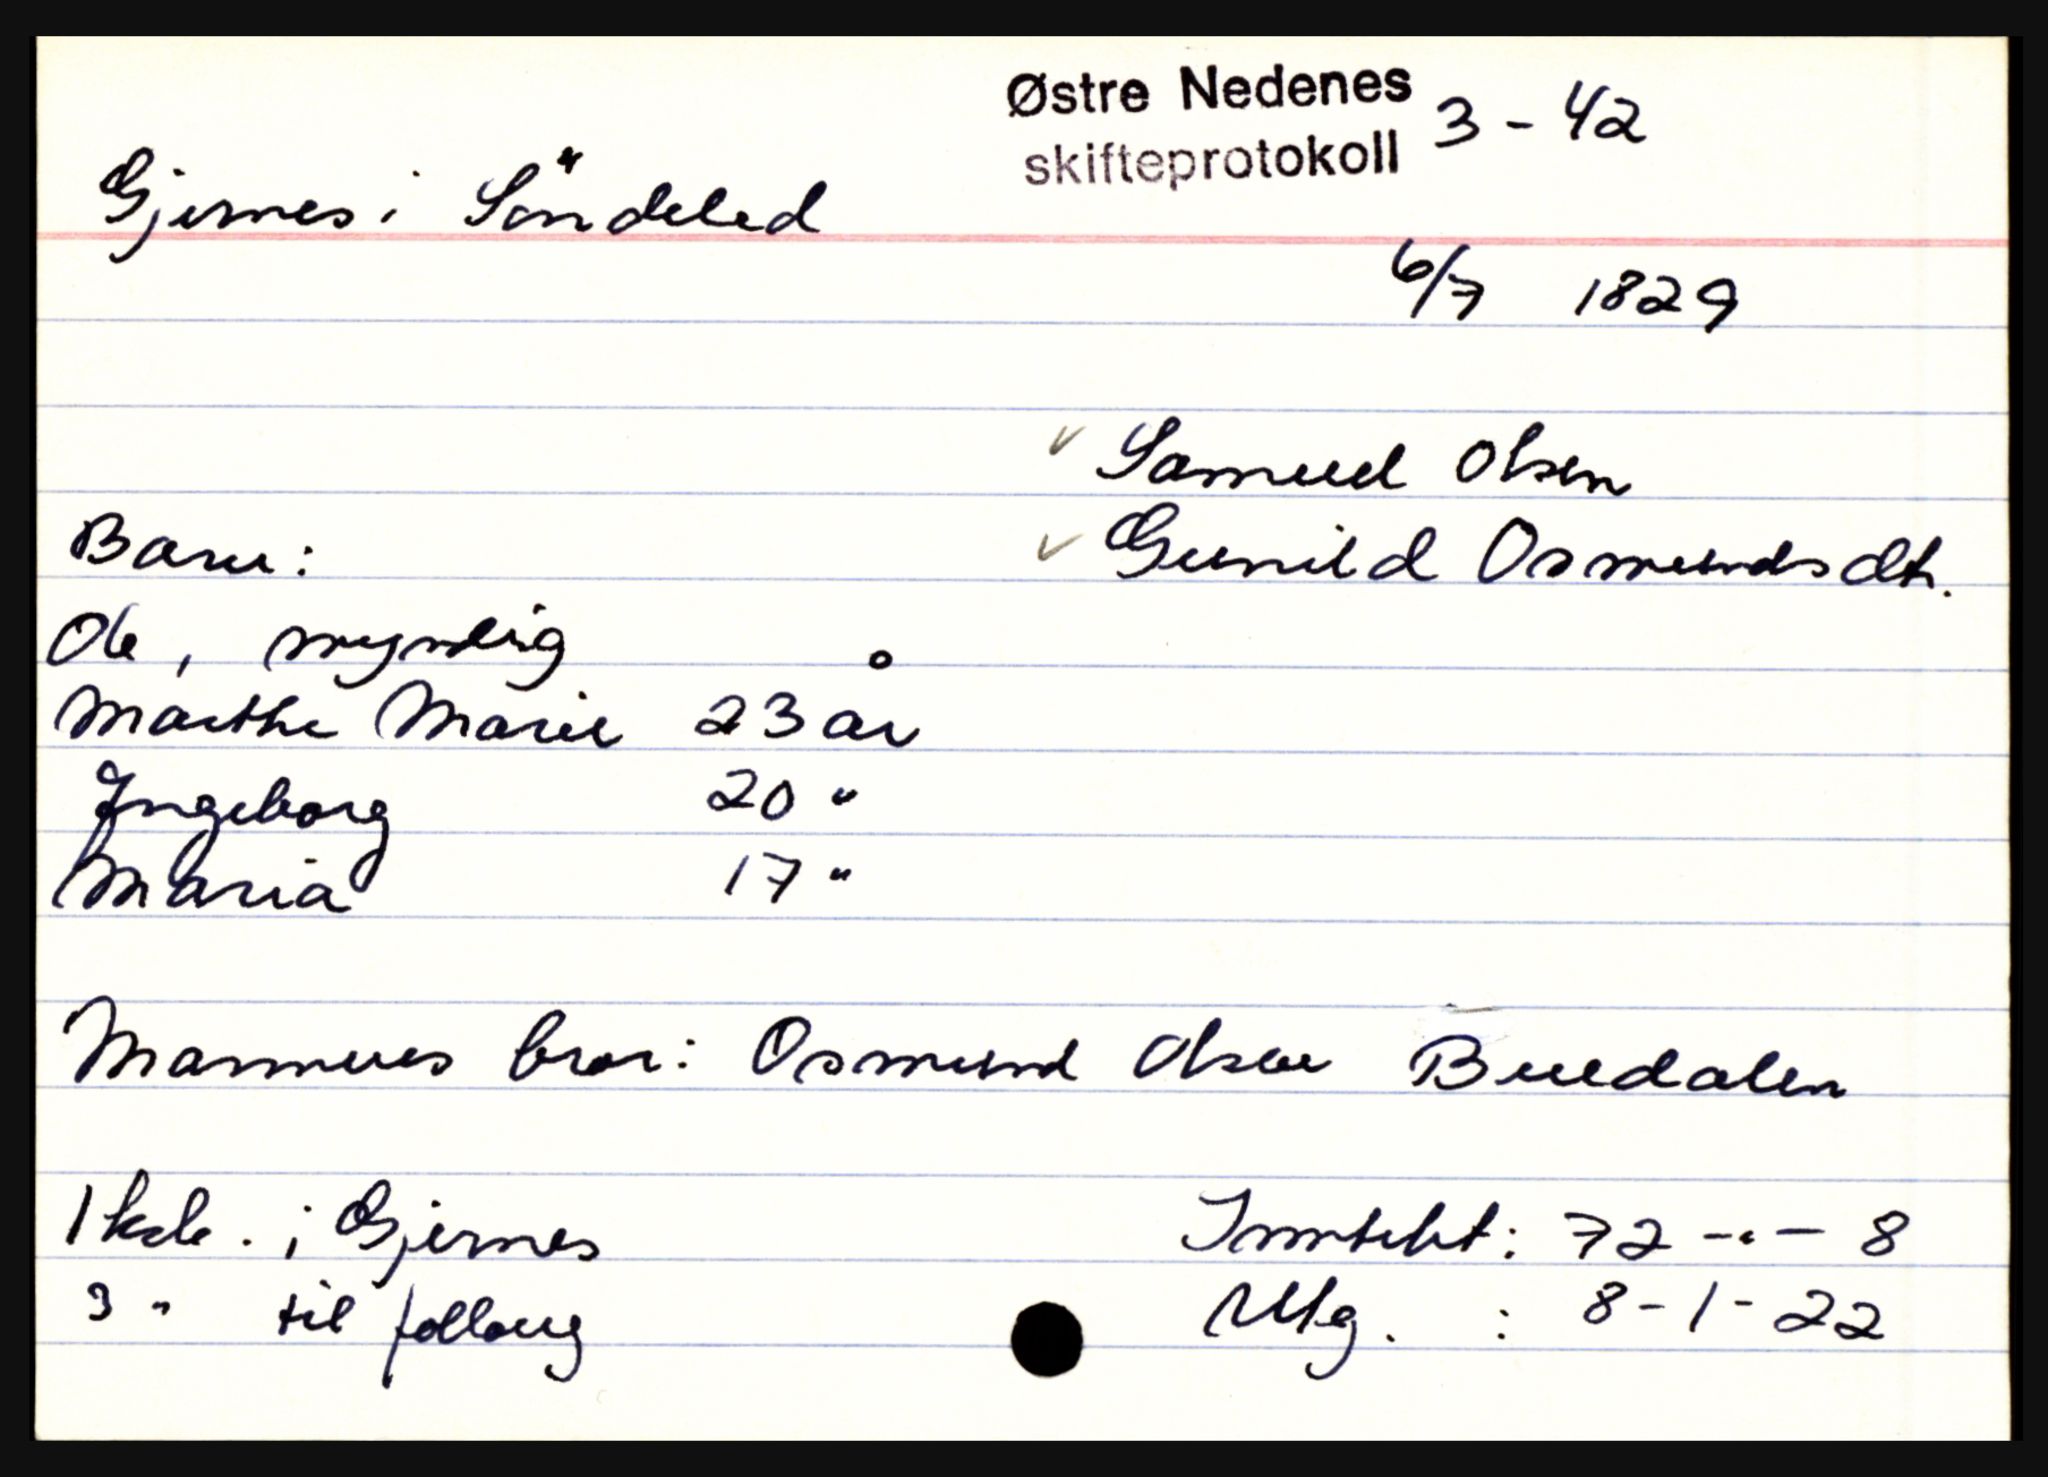 Østre Nedenes 3 - 42
skifteprotokoll
Gjernes i Söndeled
6/7 1829
Samuel Olsen
Barn: Gunild Osmundsdtr.
Ole, myndig
Marthe Marie 23 år
Ingeborg 20 "
Maria 17 "
Mannens bror: Osmund Olsen Buedalen
1 ksle. i Gjernes Inntekt: 72 - " - 8
3 " til follaug Utg. : 8 - 1 - 22